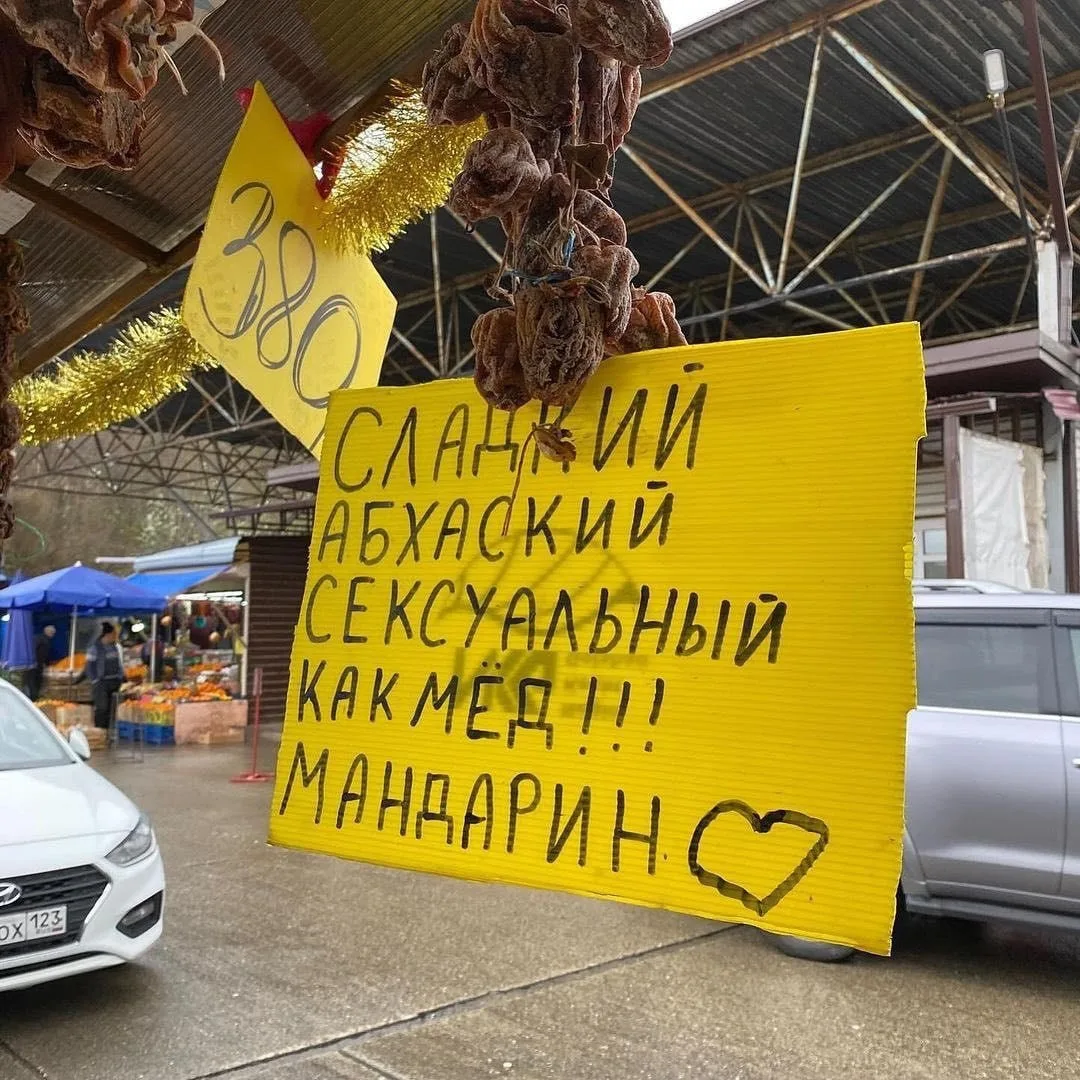 380
СЛАДКИЙ
АБХАСКИЙ
СЕКСУАЛЬНЫЙ
КАК МЁД!!!
МАНДАРИН
ОХ 123